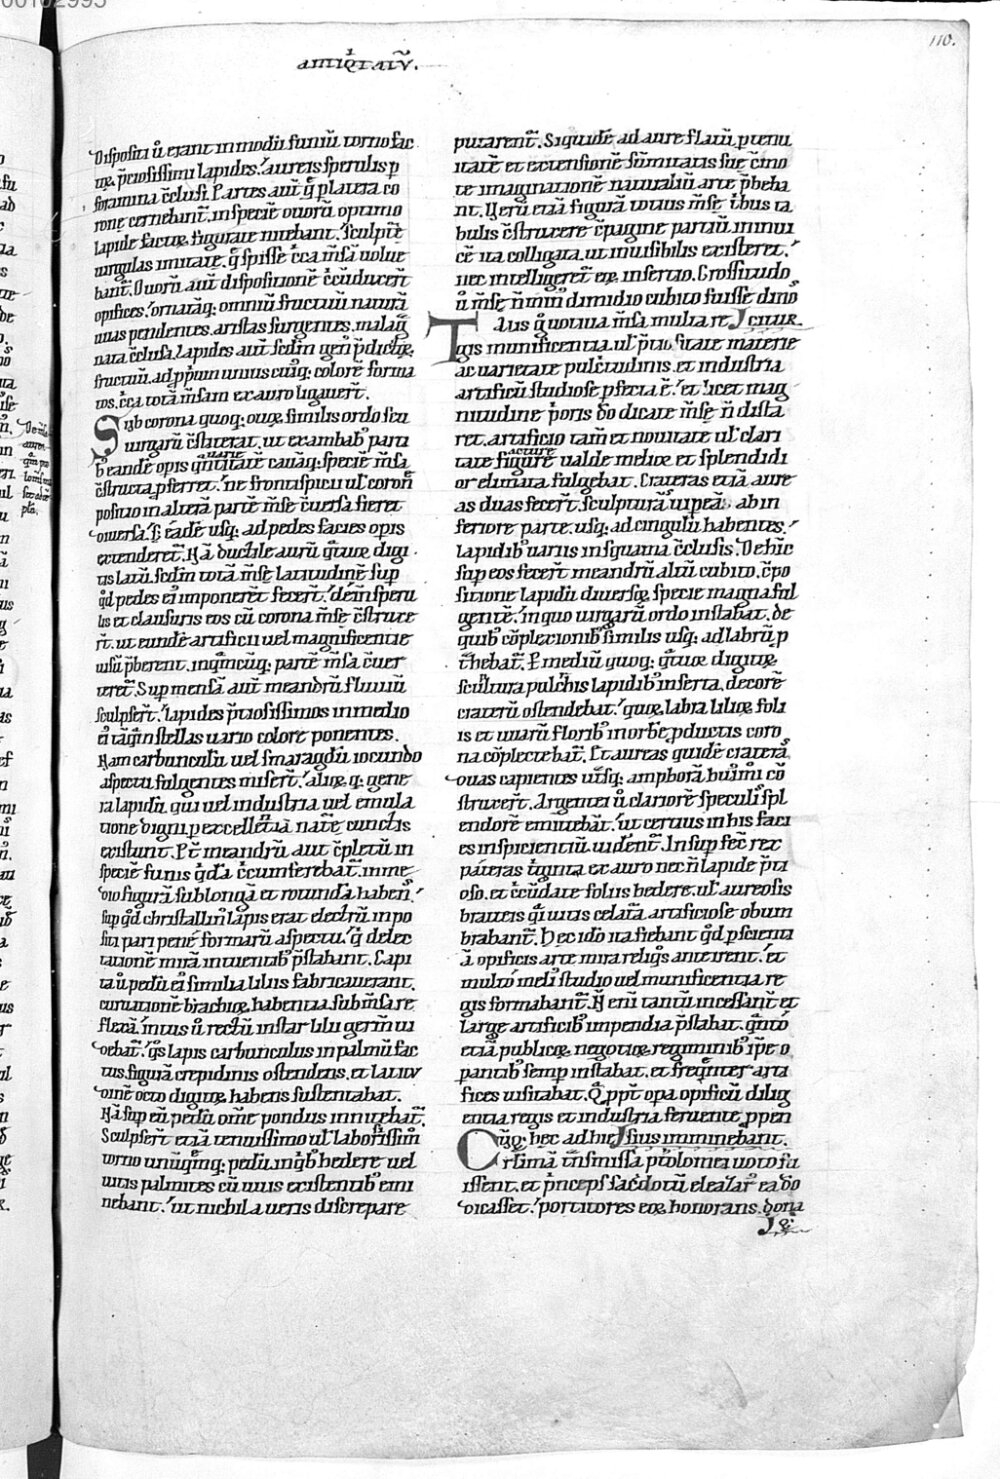 00102995
110.
antiq̇tatū.
Dispositi ů erant in modū funiū torno fac
tę. p̄ciosissimi lapides. aureis sperulis p
foramina c̄clusi. Partes aut̄ q̊ platera co
ronę cernebant̄. in speciē ouorū optimo
lapide factoꝝ figurate nitebant. sculptę
uirgulas imitatę. q̊ spisse c̄ca m̄sā uolue
bant̄. Ouorū aut̄ dispositionē c̄cūducer̄t
opifices. ornatāq; omniū fructuū naturā
uuas pendentes. aristas surgentes. malag̊
nata c̄clusa. Lapides aut̄ scd̄m gen̄ p̄dictoꝝ
fructuū. ad pp̄um unius cuiq; colorē forma
tos. c̄ca totā m̄sam ex auro ligauer̄t.
Sub corona quoq; ouoꝝ similis ordo seu
uirgarū c̄stiterat. ut ex ambab᷒ parti
b᷒ eandē opis q̄ntitatē cauāq; speciē m̄sa
c̄structa p̄ferret. ne frontispicii ul̄ coron̄
positio in alterā partē m̄sę c̄uersa fieret
diuersa. s; eadē usq; ad pedes facies opis
extenderet̄. Nā ductile aurū q̄tuoꝝ digi
tis latū. scd̄m totā m̄sę latitudinē sup
q̄d pedes ei imponerēt fecer̄t. dein speru
lis et clausuris eos cū corona m̄sę c̄struxe
r̄t. ut eundē artificii uel magnificentie
uisū p̄berent. in q̄mcūq; partē m̄sa c̄uer
teret̄. Sup mensā aut̄ meandrū fluuiū
sculpser̄t. lapides p̄tiosissimos in medio
ei tāq̄m stellas uario colore ponentes.
Nam carbunculū uel smaragdū iocundo
aspectu fulgentes miser̄t. alioꝝ q; gene
ra lapidū. qui uel industria uel emula
tione digni p excellentiā nat̄e cunctis
existunt. Et̄ meandrū aut̄ c̄pletū in
speciē funis q̊dā c̄cumferebat̄. in me
dio figurā sublongā et rotundā haben̄.
sup q̄d christallin̄ lapis erat electrū inpo
siti pari penē formarū aspectu. q̊ delec
tationē mirā intuentib᷒ p̄stabant. Capi
ta ů pedū ei similia liliis fabricauerant.
curuationē brachioꝝ habentia. sub m̄sa re
flexā. intus ů rectū instar lilii germ̄ ui
debat̄. q̊s lapis carbunculus in palmū fac
tus. figurā crepidinis ostendens. et latitu
dinē octo digitoꝝ habens sustentabat.
Nā sup eū pedū om̄e pondus innitebat̄.
Sculpser̄t etiā tenuissimo ul̄ laboriosissim̄
torno unūq̄mq; pedū. in q̊b᷒ hedere uel
uitis palmites cū uuis existentib᷒ emi
nebant. ut nichil a ueris discrepare
putarent̄. Siquidē ad aure flatū p tenu
itatē et extensionē sūmitatis suę c̄mo
te imaginationē naturaliū arte p̄beba
nt. Uerū etiā figurā totius m̄sę t̄bus ta
bulis c̄struxere c̄pagine partiū inuui
cē ita colligata. ut inuisibilis existeret.
nec intelligeret̄ eoꝝ insertio. Grossitudo
ů m̄sę n̄ min᷒ dimidio cubito fuisse dinos
Talis q̊ uotiua m̄sa multa re
gis munificentia. ul̄ p̄tiositate materie
ac uarietate pulcitudinis. et industria
artificū studiose p̄fecta ē. et licet mag
nitudine p̄oris do dicate m̄sę n̄ dista
ret. artificio tam̄ et nouitate ul̄ clari
tate figurę ualde melioꝝ et splendidi
or elimata fulgebat. Crateras etiā aure
as duas fecer̄t. sculpturā uipeā. ab in
feriore parte. usq; ad cingulū habentes.
lapidib᷒ uariis in squama c̄clusis. Dehīc
sup eos fecer̄t meandrū altū cubito. c̄po
sitione lapidū diuersoꝝ specie magna ful
gentē. in quo uirgarū ordo instabat. de
quib᷒ c̄plexionib᷒ similis usq; ad labrū p
t̄hebat̄. Et mediū quoq; q̄tuoꝝ digitoꝝ
scultura pulchis lapidib᷒ inserta. decorē
craterū ostendebat. quoꝝ labra lilioꝝ foli
is et uuarū florib᷒ in orbē p̄ductis coro
na c̄plectebat̄. Et aureas quidē crateras
duas capientes utsq; amphorā huīmī cō
struxer̄t. Argentei ů clariorē speculi spl
endorē emittebāt. ut certius in his faci
es inspicientiū uident̄. Insup fec̄ rex
páteras t̄ginta ex auro nec n̄ lapide p̄ti
oso. et c̄cūdate foliis hedere. ul̄ aureosis
bratteis q̊i uitis celat̄a. artificiose obum
brabant̄. Hec idō ita fiebant q̊d p scienti
ā opificis arte mira religos anteirent. et
multo meli studio uel munificentia re
gis formabant̄. N̄ eni tantū incessant̄ et
large artificib᷒ impendia p̄stabat. q̄nto
etiā publicoꝝ negotioꝝ regiminib᷒ ip̄e o
pantib᷒ semp instabat. et freq̄nter arti
fices uisitabat. Q ppt̄ opa opificū dilig
entia regis et industria feruente p̄pen
Cūq; hec ad hierosius imminebant.
r̄simā t̄nsmissa ptolomei uoto fu
issent. et p̄nceps sac̄dotū eleazar᷒ ea do
dicasset. portitores eoꝝ honorans. dona